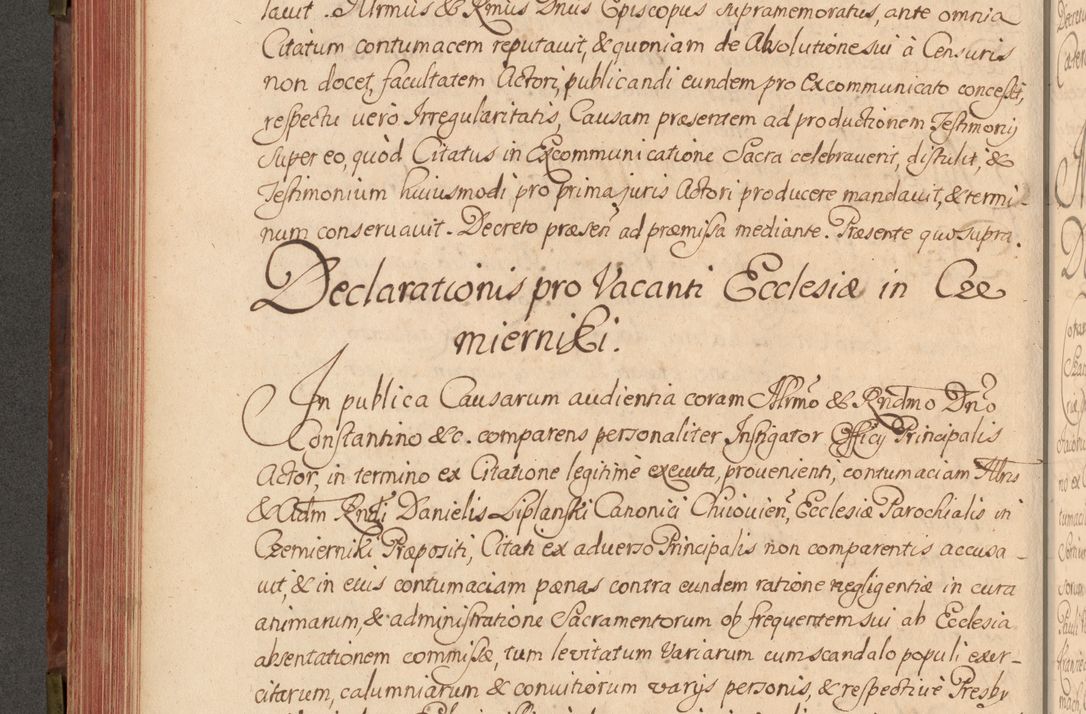 lavit. Illrmus & Rmus Dnus Episcopus supramemoratus, ante omnia
Citatum contumacem reputavit, & quoniam de Absolutione sui à Censuris
non docet, facultatem Actori, publicandi eundem pro Excommunicato concessit,
respectu vero Irregularitatis, Causam præsentem ad productionem Testimonij
super eo, quòd Citatus in Excommunicatione Sacra celebraverit, distulit, &
Testimonium huiusmodi pro prima juris Actori producere mandavit, & termi-
num conservavit. Decreto præsen̄ ad præmissa mediante. Præsente quo supra.
Declarationis pro Vacanti Ecclesiæ in Cze
mierniki.
In publica Causarum audientia coram Illrmo & Rndmo Dno
Constantino &c. comparens personaliter Instigator Officij Principalis
Actor, in termino ex Citatione legitimè executa, provenienti, contumaciam Illris
& Adm Rndi Danielis Liplanski Canonici Chiiovien̄, Ecclesiæ Parochialis in
Czemierniki Præpositi, Citati ex adverso Principalis non comparentis accusa-
vit, & in eius contumaciam pænas contra eundem ratione negligentiæ in cura
animarum, & administratione Sacramentorum ob frequentem sui ab Ecclesia
absentationem commissæ, tum levitatum variarum cum scandalo populi exer-
citarum, calumniarum & convitiorum varijs personis, & respectivè Presby